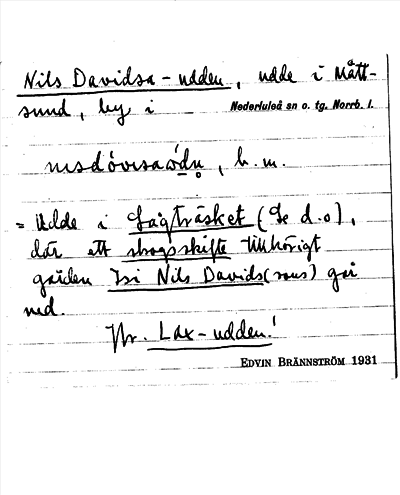 Nils Davidsa-udden, udde i Mått-
sund, by i Nederluleå sn o. tg. Norrb. l.
b. m.
= Udde i Lågträsket (Se d.o),
där ett skogsskifte tillhörigt
gården Isi Nils Davids(sons) går
ned.
Jfr. Lax-udden!
EDVIN BRÄNNSTRÖM 1931